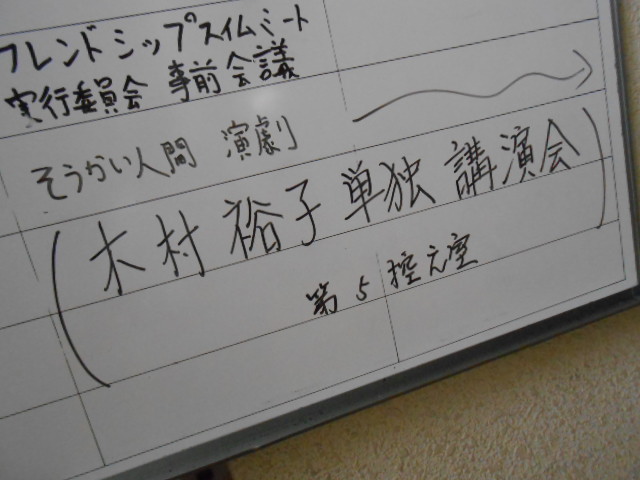 フレンドシップスイムミート
実行委員会 事前会議
そうかい人間 演劇
(木村裕子単独講演会)
第5控え室